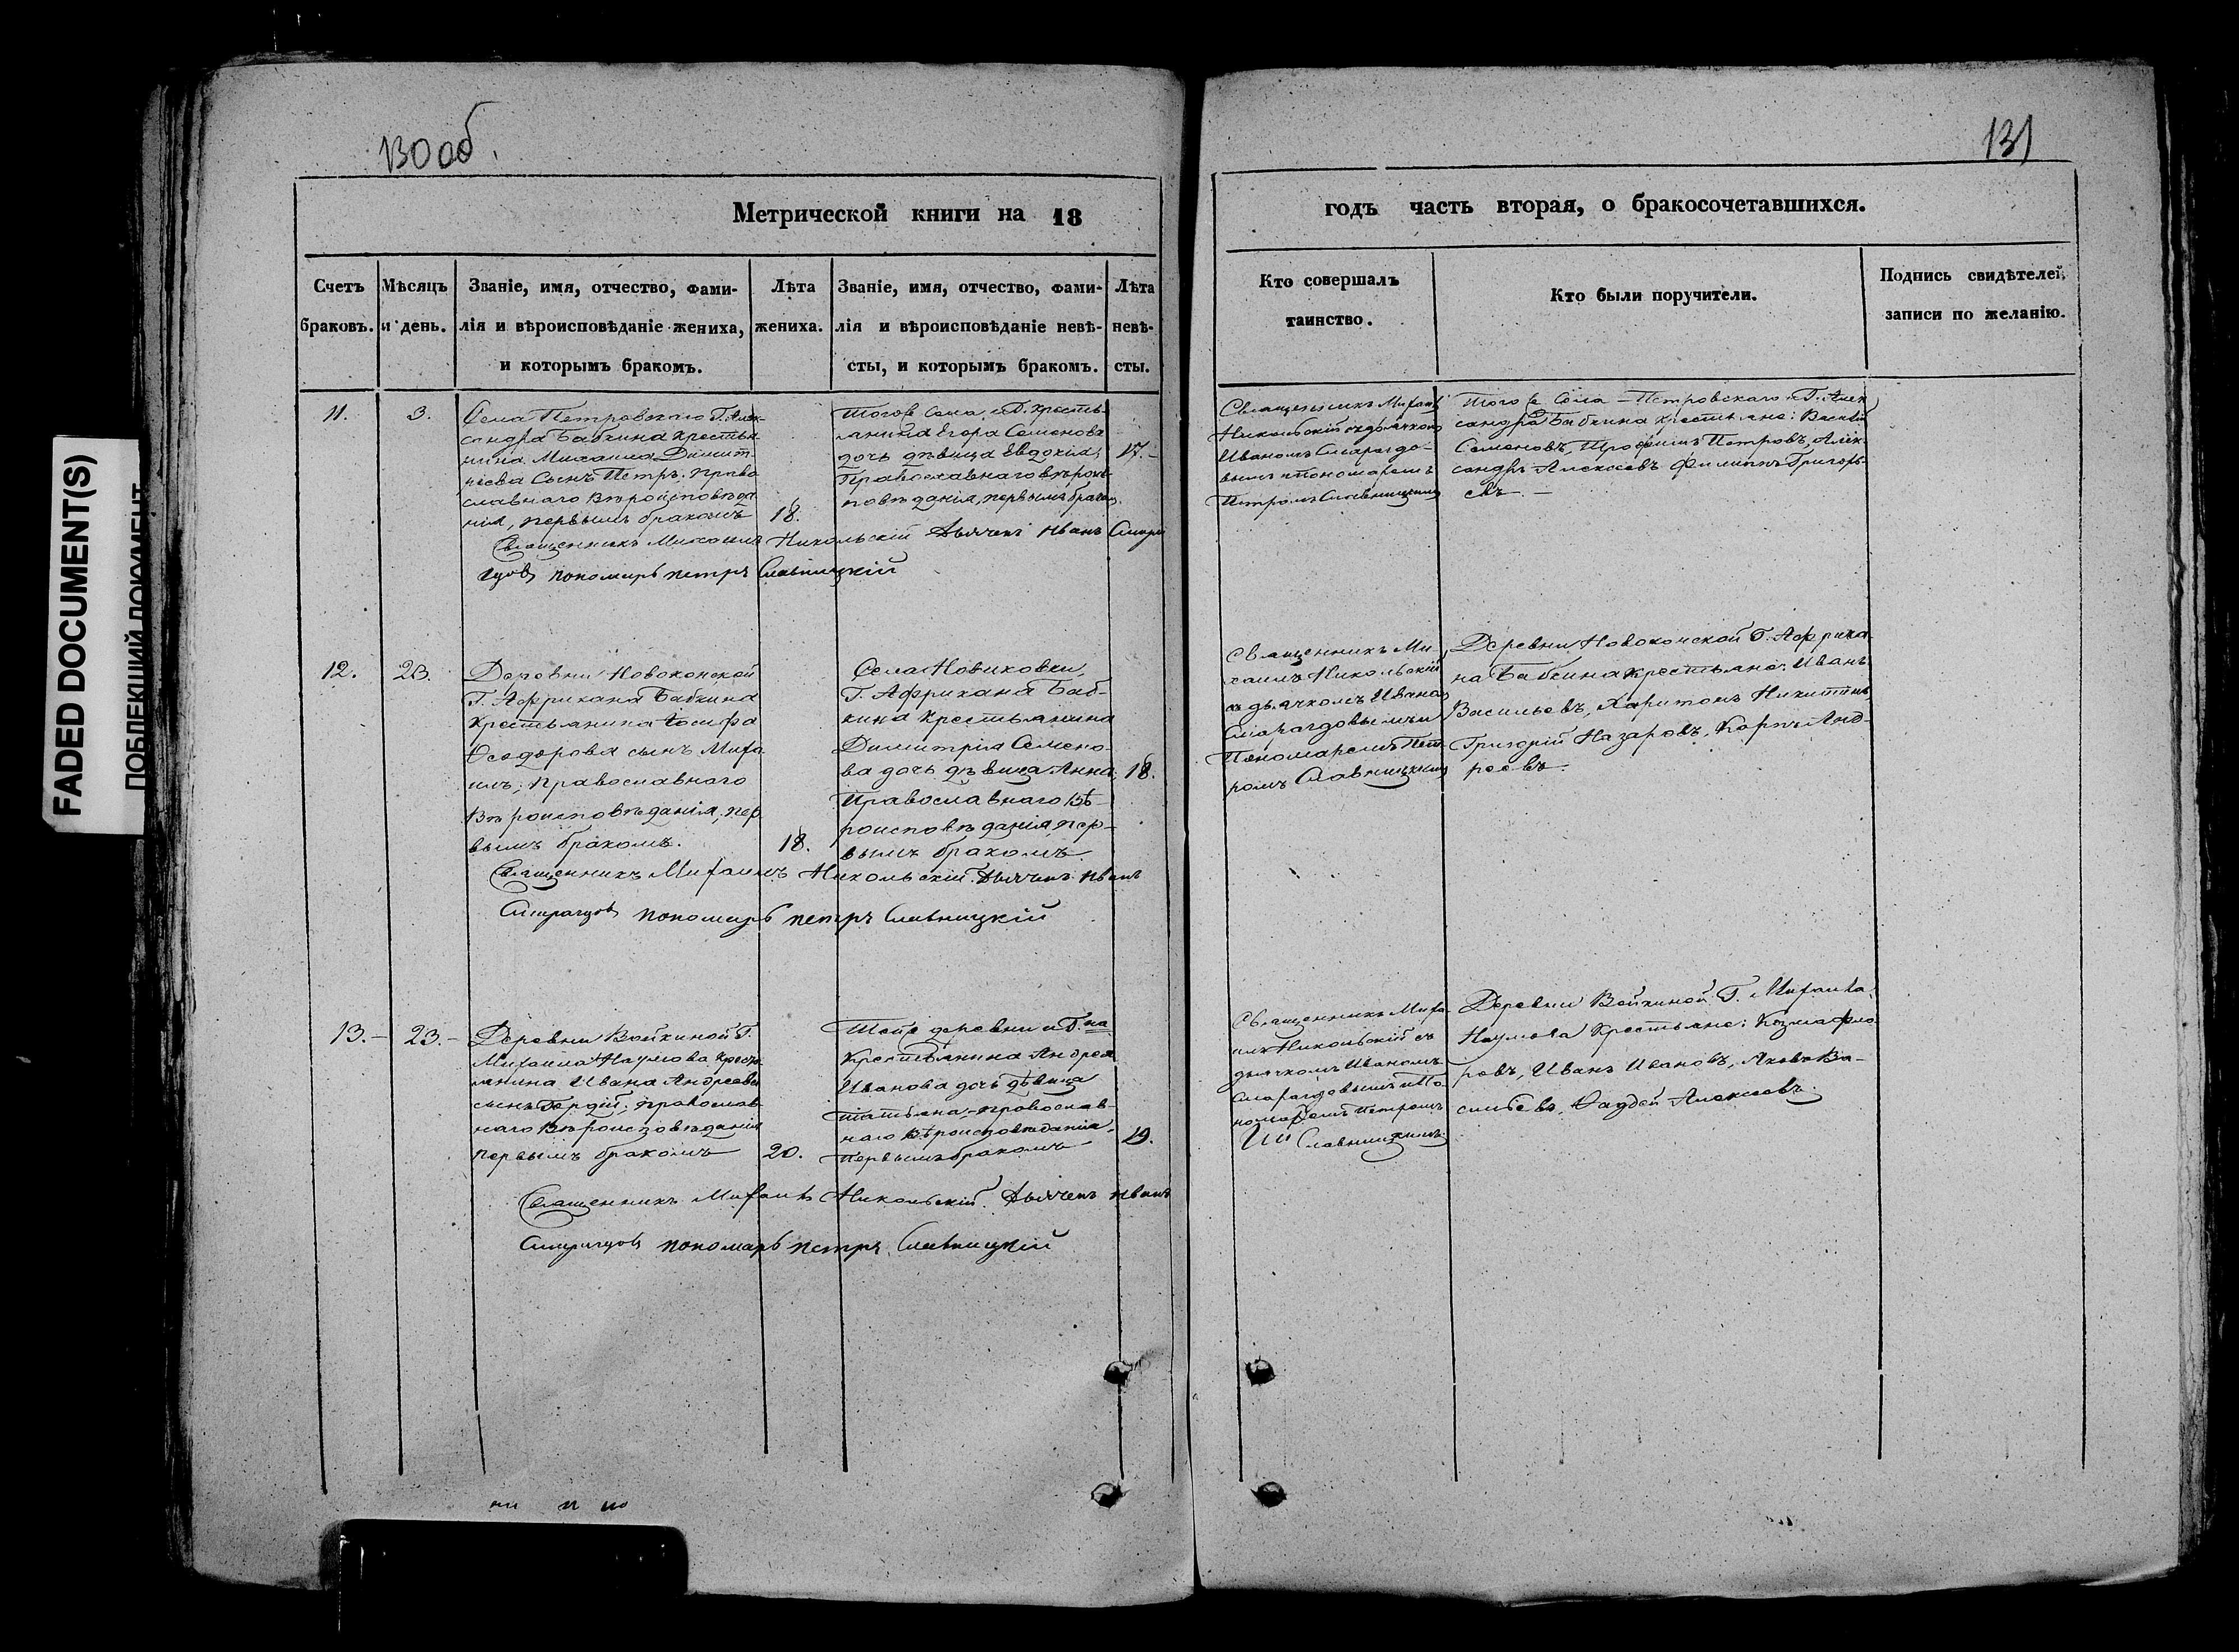 FADED DOCUMENT(S)
ПОБЛЕКШИЙ ДОКУМЕНТ
130 об.
Метрической книги на 18
Счетъ браковъ.
Мѣсяцъ и день.
Званіе, имя, отчество, фами-
лія и вѣроисповѣданіе жениха,
и которымъ бракомъ.
Лѣта
жениха.
Званіе, имя, отчество, фами-
лія и вѣроисповѣданіе невѣ-
сты, и которымъ бракомъ.
Лѣта
невѣ-
сты.
11.
3.
Села Петровскаго Г. Алек-
сандра Бабкина крестья
нина Михаила Димит-
ріева Сынъ Петръ. Право
славнаго Вѣроисповѣда
нія, первымъ бракомъ
18.
Тогоже Села и Г. кресть-
янина Егора Семенова
дочь дѣвица Евдокія,
Православнаго вѣроис-
повѣданія, первымъ бракомъ
17.-
Священникъ Михаилъ Никольскій Дьячекъ Иванъ Смара
гдовъ пономарь петръ Славницкій
12.
23.
Деревни Новоконской
Г. Африкана Бабкина
Крестьянина Іосифа
Ѳеодорова сынъ Миха
илъ; Православнаго
Вѣроисповѣданія, пер
вымъ бракомъ.
18.
Села Новиковки,
Г. Африкана Баб-
кина Крестьянина
Димитрія Семено-
ва дочь дѣвица Анна,
Православнаго Вѣ-
роисповѣданія, пер-
вымъ бракомъ.
18.
Священникъ Михаилъ Никольскій. Дьячекъ Иванъ
Смарагдовъ пономарь петръ Славницкій
13.-
23.-
Деревни Войкиной Г.
Михаила Наумова Кресть
янина Ивана Андреева
сынъ Гордій; православ
наго Вѣроисповѣданія
первымъ бракомъ
20.
Тойже деревни и Г. на
Крестьянина Андрея
Иванова дочь дѣвица
Татьяна, православ-
наго Вѣроисповѣданія,
первымъ бракомъ
19.
Священникъ Михаилъ Никольскій. Дьячекъ Иванъ
Смарагдовъ пономарь петръ Славницкій
131
годъ часть вторая, о бракосочетавшихся.
Кто совершалъ
таинство.
Кто были поручители.
Подпись свидѣтелей
записи по желанію.
Священникъ Михаилъ
Никольскій съ дьячкомъ
Иваномъ Смарагдо-
вымъ и пономаремъ
Петромъ Славницкимъ
Тогоже Села Петровскаго Г. Алек
сандра Бабкина крестьяне: Василій
Семеновъ, Трофимъ Петровъ, Алек-
сандръ Алексеевъ Филиппъ Григорь-
евъ
Священникъ Ми-
хаилъ Никольскій
съ дьячкомъ Ивано
Смарагдовымъ и
Пономаремъ Пет-
ромъ Славницкимъ
Деревни Новоконской Г. Африка-
на Бабкина крестьяне: Иванъ
Васильевъ, Харитонъ Никитинъ,
Григорій Назаровъ, Карпъ Анд-
реевъ.
Священникъ Миха
илъ Никольскій съ
дьячкомъ Иваномъ
Смарагдовымъ и По
номаремъ Петромъ
Славницкимъ
Деревни Войкиной Г. Михаила
Наумова Крестьяне: Козма Фло
ровъ, Иванъ Ивановъ, Яковъ Ва-
сильевъ, Фаддей Алексеевъ.